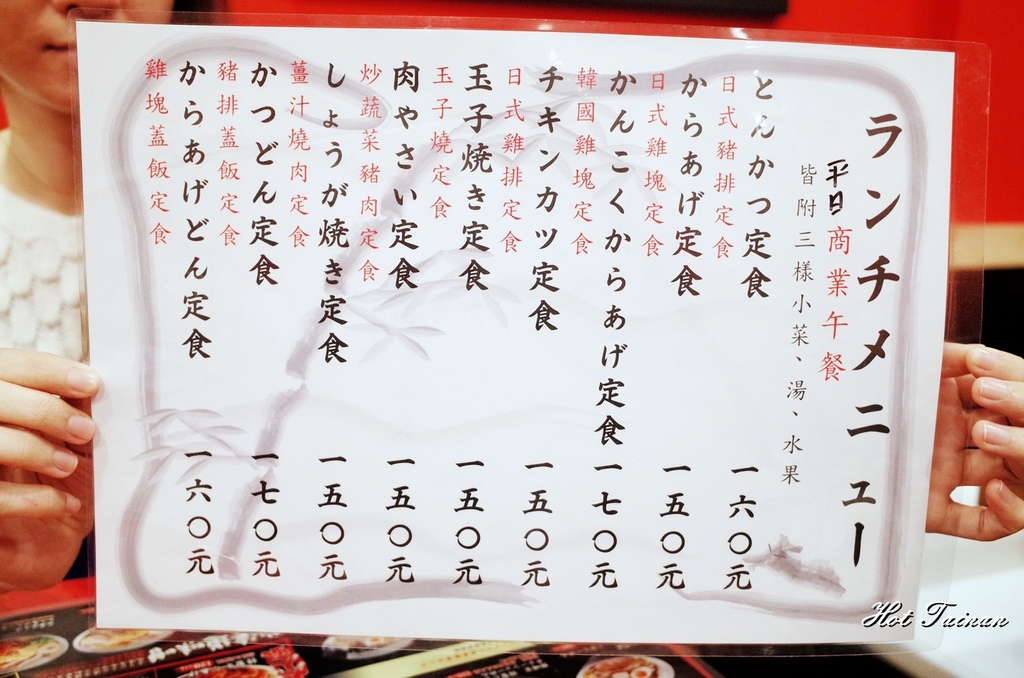 ランチメニュー
平日商業午餐
皆附三樣小菜、湯、水果
とんかつ定食 一六〇元
日式豬排定食
からあげ定食 一五〇元
日式雞塊定食
かんこくからあげ定食 一七〇元
韓國雞塊定食
チキンカツ定食 一五〇元
日式雞排定食
玉子焼き定食 一五〇元
玉子燒定食
肉やさい定食 一五〇元
炒蔬菜豬肉定食
しょうが焼き定食 一五〇元
薑汁燒肉定食
かつどん定食 一七〇元
豬排蓋飯定食
からあげどん定食 一六〇元
雞塊蓋飯定食
Hot Tainan